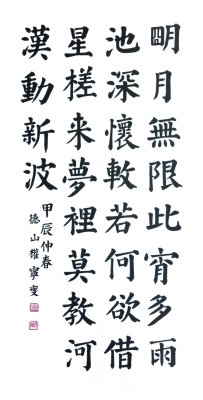 明月無限此宵多雨
池深懷較若何欲借
星槎来夢裡莫教河
漢動新波
甲辰仲春
德山權寧